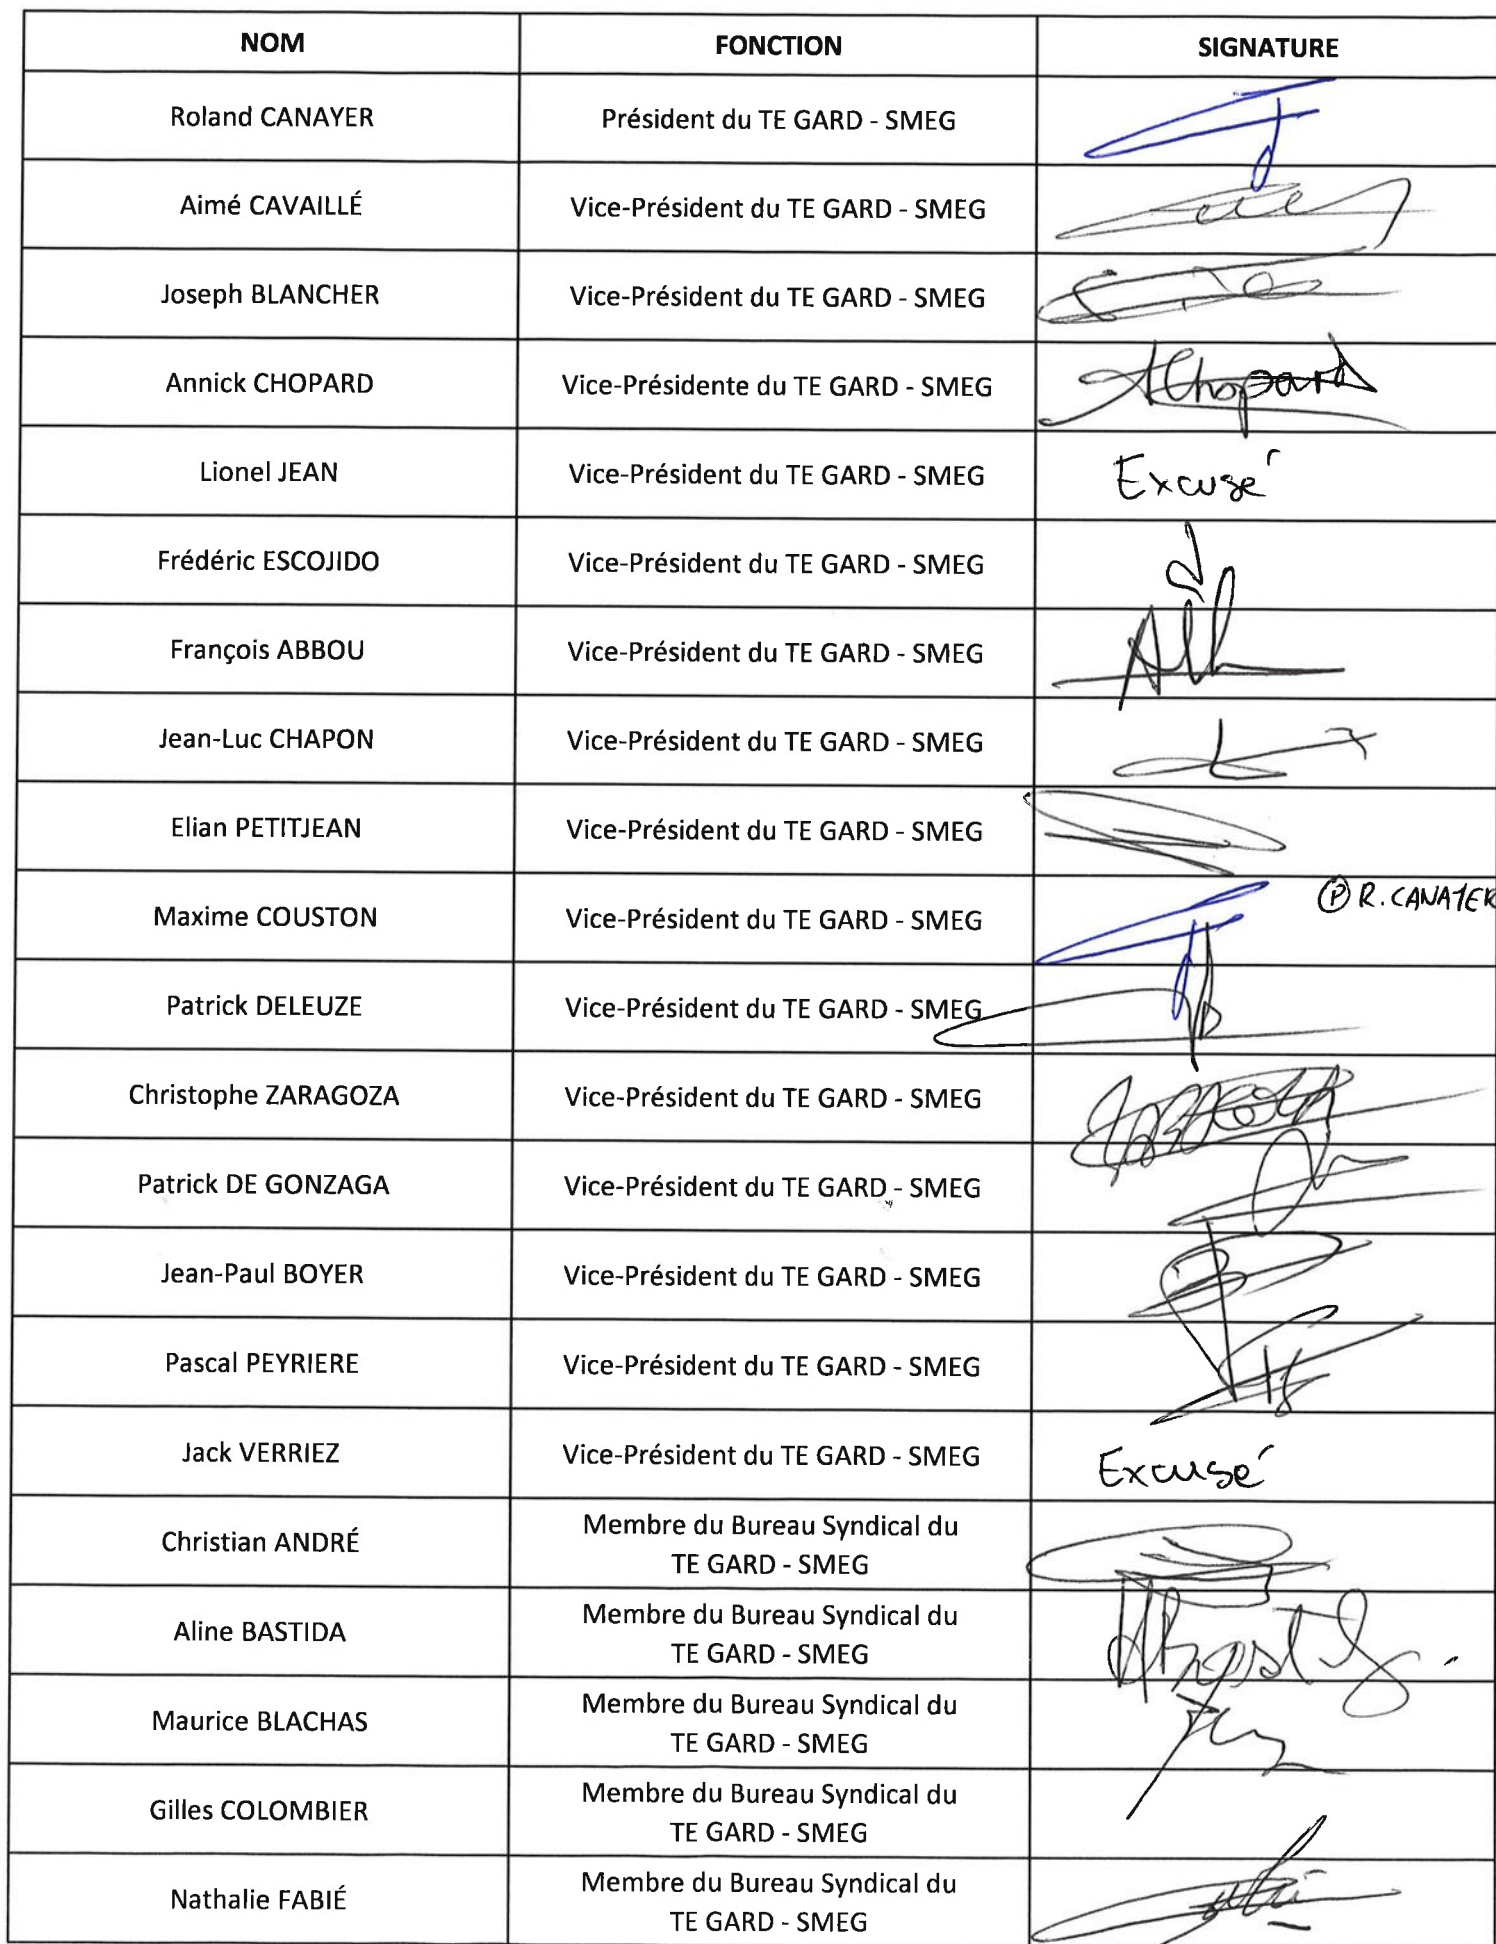 NOM FONCTION SIGNATURE
Roland CANAYER Président du TE GARD - SMEG
Aimé CAVAILLÉ Vice-Président du TE GARD - SMEG
Joseph BLANCHER Vice-Président du TE GARD - SMEG
Annick CHOPARD Vice-Présidente du TE GARD - SMEG AChopard
Lionel JEAN Vice-Président du TE GARD - SMEG Excusé
Frédéric ESCOJIDO Vice-Président du TE GARD - SMEG
François ABBOU Vice-Président du TE GARD - SMEG
Jean-Luc CHAPON Vice-Président du TE GARD - SMEG
Elian PETITJEAN Vice-Président du TE GARD - SMEG
Maxime COUSTON Vice-Président du TE GARD - SMEG Ⓟ R. CANAYER
Patrick DELEUZE Vice-Président du TE GARD - SMEG
Christophe ZARAGOZA Vice-Président du TE GARD - SMEG
Patrick DE GONZAGA Vice-Président du TE GARD - SMEG
Jean-Paul BOYER Vice-Président du TE GARD - SMEG
Pascal PEYRIERE Vice-Président du TE GARD - SMEG
Jack VERRIEZ Vice-Président du TE GARD - SMEG Excusé
Christian ANDRÉ Membre du Bureau Syndical du
TE GARD - SMEG
Aline BASTIDA Membre du Bureau Syndical du
TE GARD - SMEG
Maurice BLACHAS Membre du Bureau Syndical du
TE GARD - SMEG
Gilles COLOMBIER Membre du Bureau Syndical du
TE GARD - SMEG
Nathalie FABIÉ Membre du Bureau Syndical du
TE GARD - SMEG